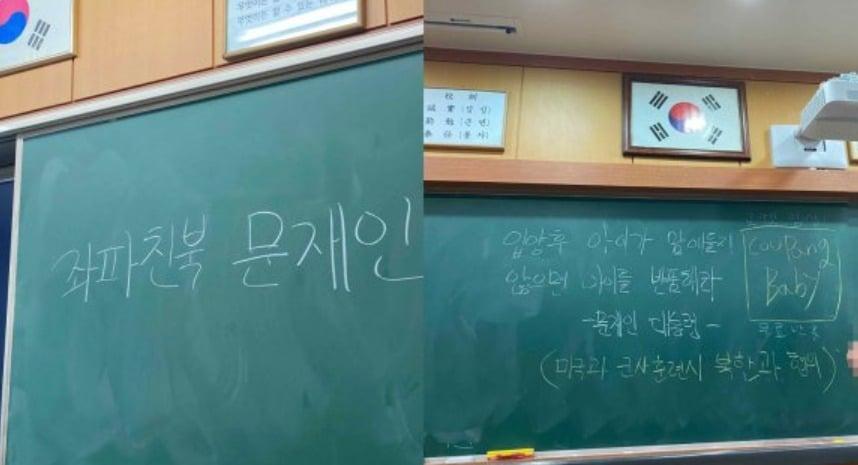 무엇이든 할 수 있는
좌파친북 문재인
校 訓
誠 實 (성 실)
勤 勉 (근 면)
奉 仕 (봉 사)
입양후 아이가 맘에들지
않으면 아이를 반품해라
-문재인 대통령 -
(미국과 군사훈련시 북한과 협의)
Coupang
Baby
무료반품